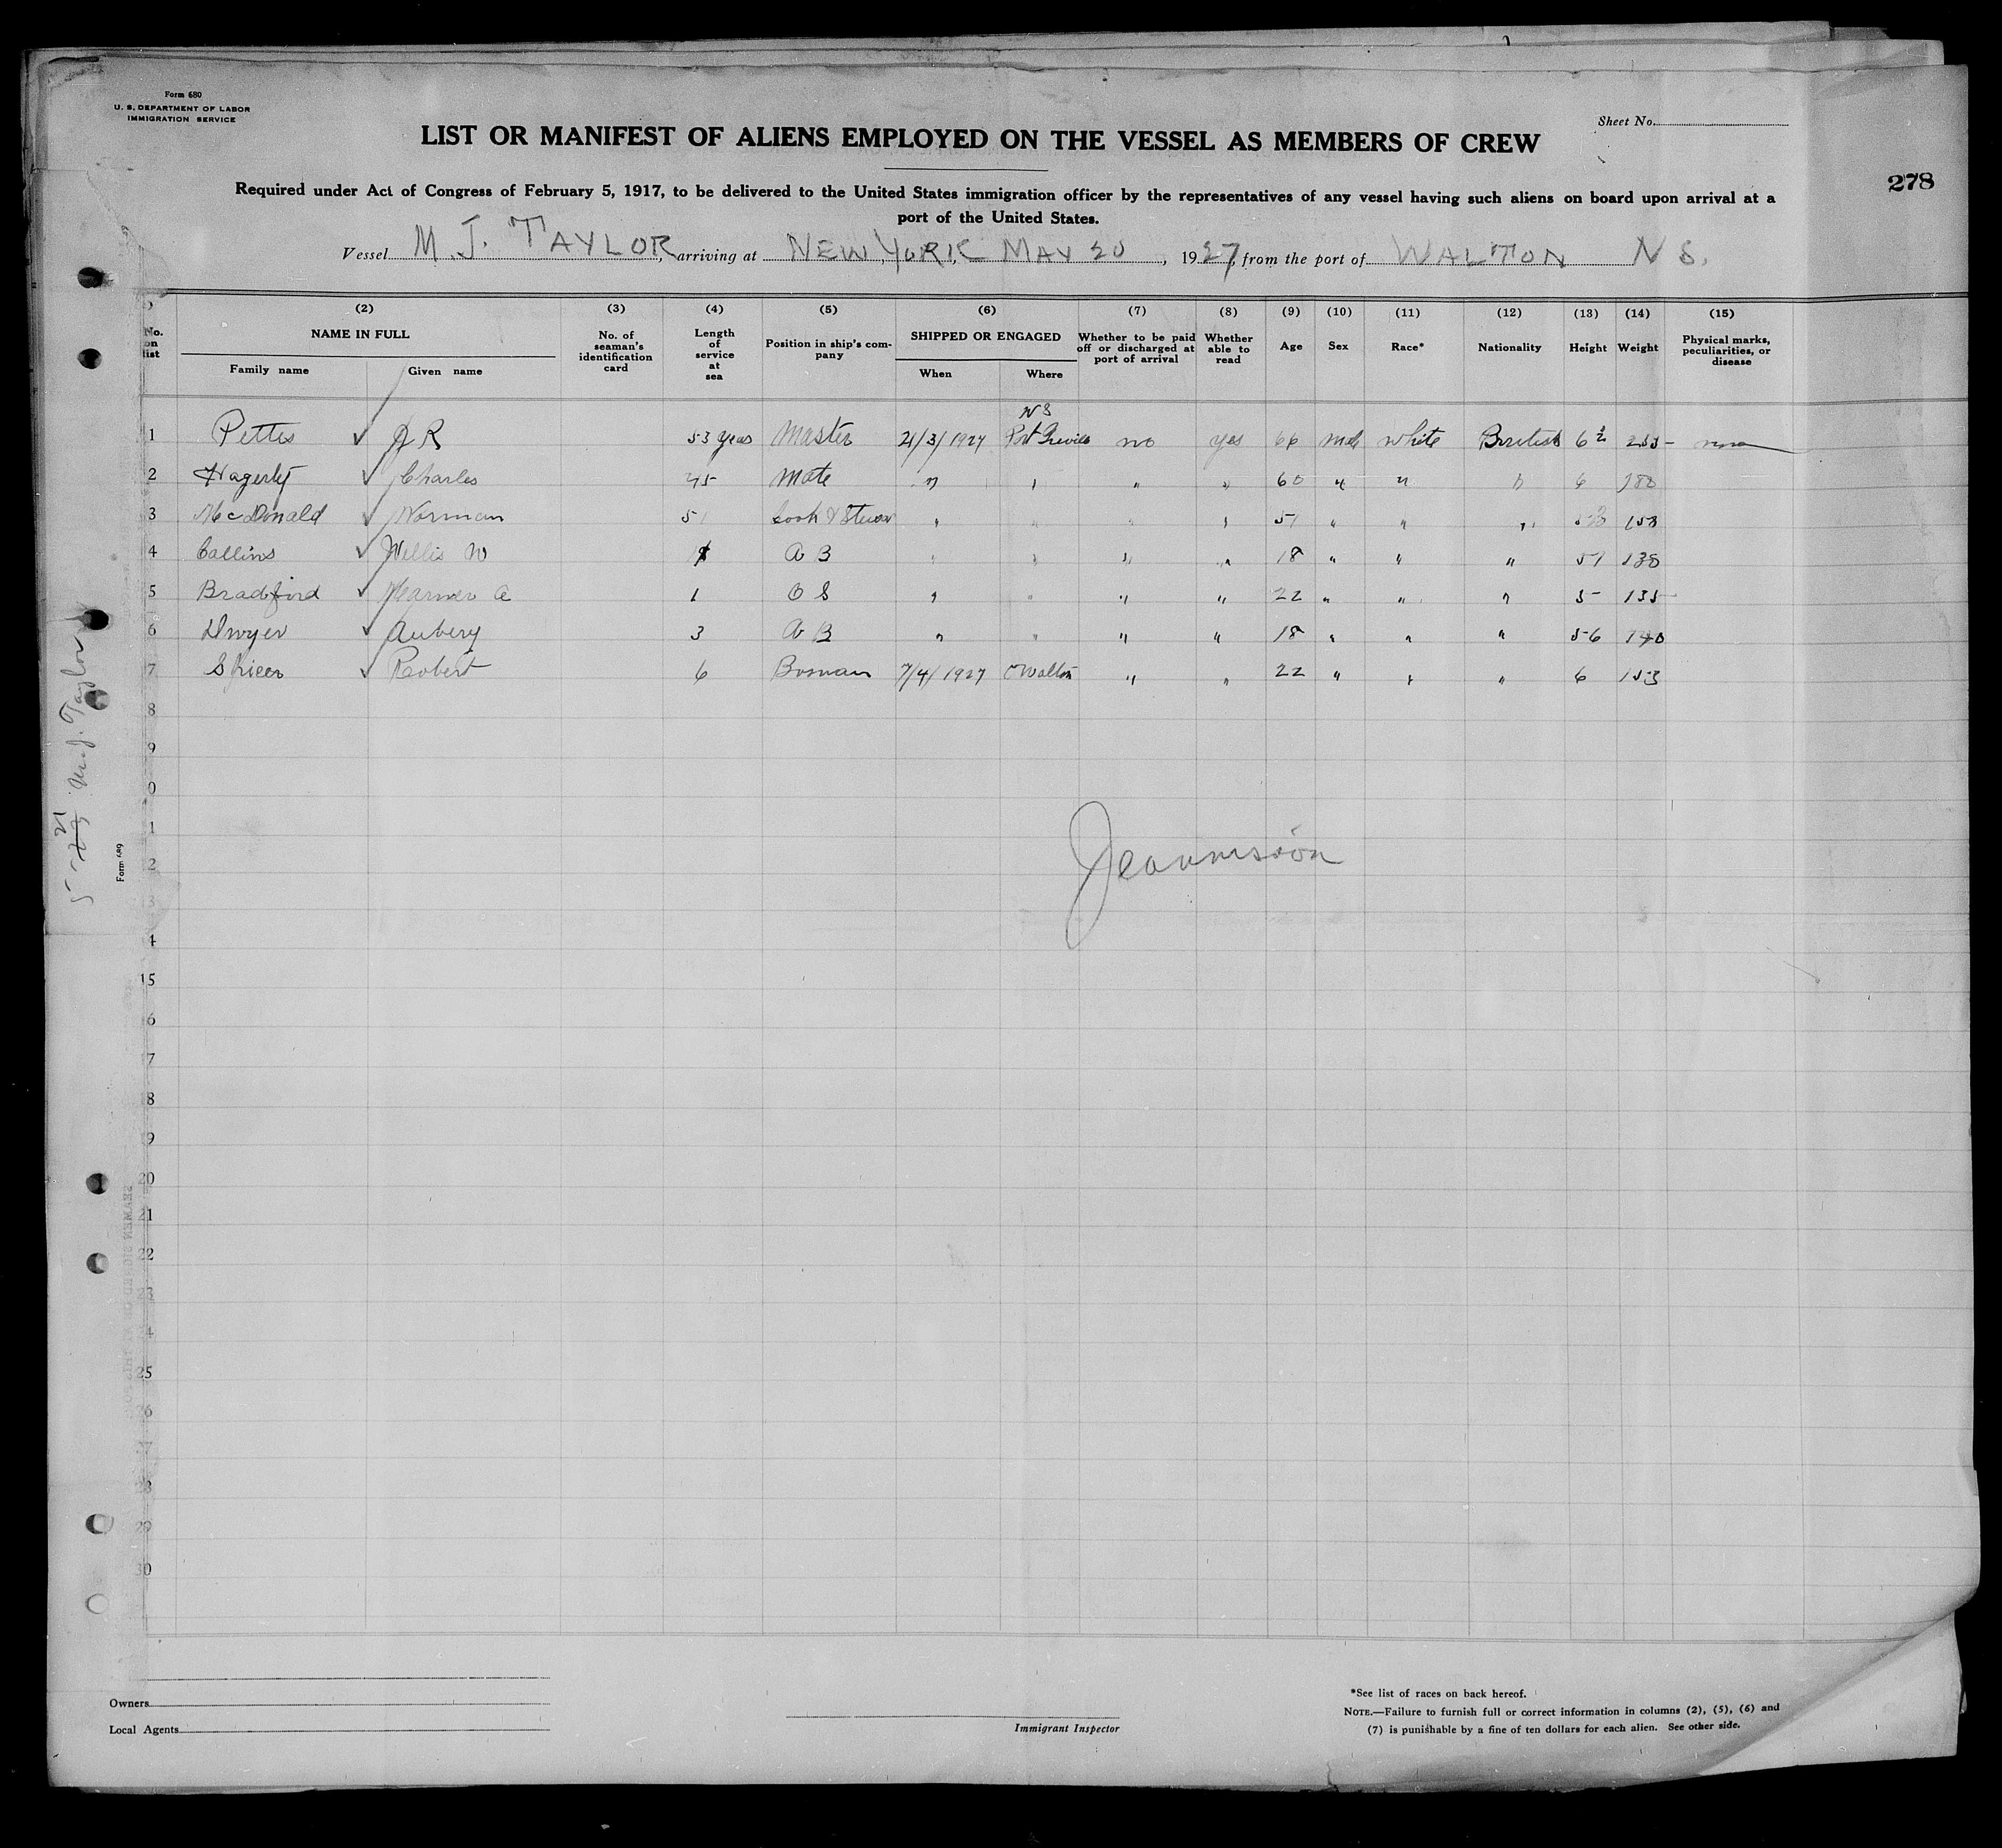 Form 680
U. S. DEPARTMENT OF LABOR
IMMIGRATION SERVICE
Sheet No.
LIST OR MANIFEST OF ALIENS EMPLOYED ON THE VESSEL AS MEMBERS OF CREW
278
Required under Act of Congress of February 5, 1917, to be delivered to the United States immigration officer by the representatives of any vessel having such aliens on board upon arrival at a
port of the United States.
Vessel M. J. TAYLOR, arriving at NEW YORK MAY 20, 1927, from the port of WALTON N S.
(2) (3) (4) (5) (6) (7) (8) (9) (10) (11) (12) (13) (14) (15)
No. on list
NAME IN FULL
Family name Given name
No. of seaman's identification card
Length of service at sea
Position in ship's company
SHIPPED OR ENGAGED
When Where
Whether to be paid off or discharged at port of arrival
Whether able to read
Age
Sex
Race*
Nationality
Height
Weight
Physical marks, peculiarities, or disease
N S
1 Pettis J R 53 years Master 21/3/1927 no yes 66 male white British 6 2
2 Hagerty Charles 45 Mate " " " " 60 " " " 6 180
3 McDonald Norman 51 Cook & " " " " 51 " " " 153
4 Collins Willis W A B " " " " 18 " " " 5-7 138
5 Bradford A 1 O S " " " " 22 " " " 5 135
6 Dwyer Aubery 3 A B " " " " 18 " " " 5-6 140
7 Spicer Robert 6 Bosman 7/4/1927 Walton " " 22 " " " 6 153
8
9
0
1
2
3
4
15
6
7
8
9
20
21
22
23
4
25
26
27
28
29
30
5-21 M. J. Taylor
Form 689
Owners
Local Agents
Immigrant Inspector
*See list of races on back hereof.
NOTE.—Failure to furnish full or correct information in columns (2), (5), (6) and
(7) is punishable by a fine of ten dollars for each alien. See other side.